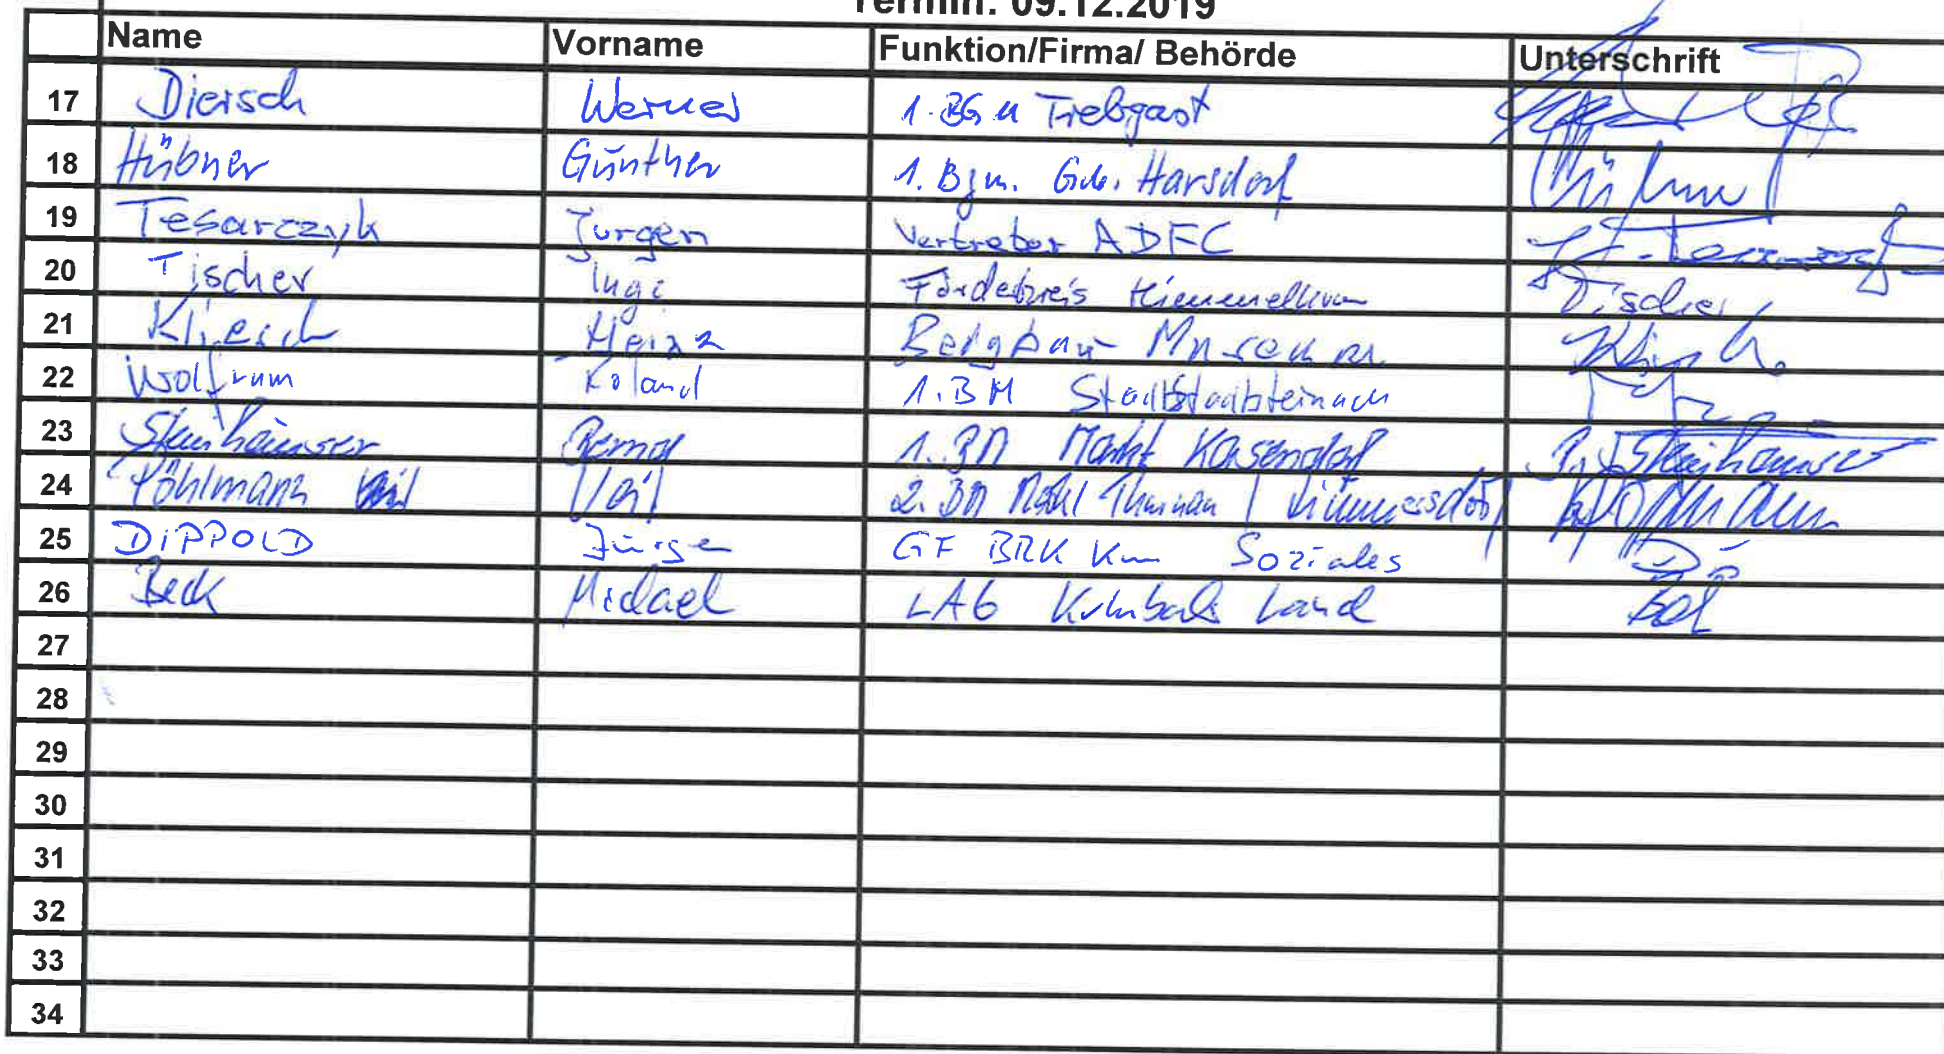 Termin: 09.12.2019
Name Vorname Funktion/Firma/ Behörde Unterschrift
17 Diersch Werner 1. BGM Trebgast
18 Hübner Günther 1. Bgm. Gde. Harsdorf
19 Tesarczyk Jürgen Vertreter ADFC
20 Tischer Inge Förderkreis Himmelkron Tischer
21 Kliesch Heinz Bergbau Museum
22 Wolfrum Roland 1. BM Stadt Stadtsteinach
23 Steinhäuser Bernd 1. BM Markt Kasendorf Steinhäuser
24 Pöhlmann Veit 2. BM Markt Thurnau
25 DIPPOLD Jürgen GF BRK Soziales
26 Beck Michael LAG Land
27
28
29
30
31
32
33
34